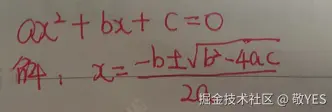 ax²+bx+c=0
解: x=(-b±√(b²-4ac))/2a
掘金技术社区 @ 敬YES